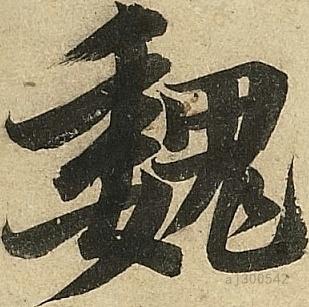 魏
aj300542